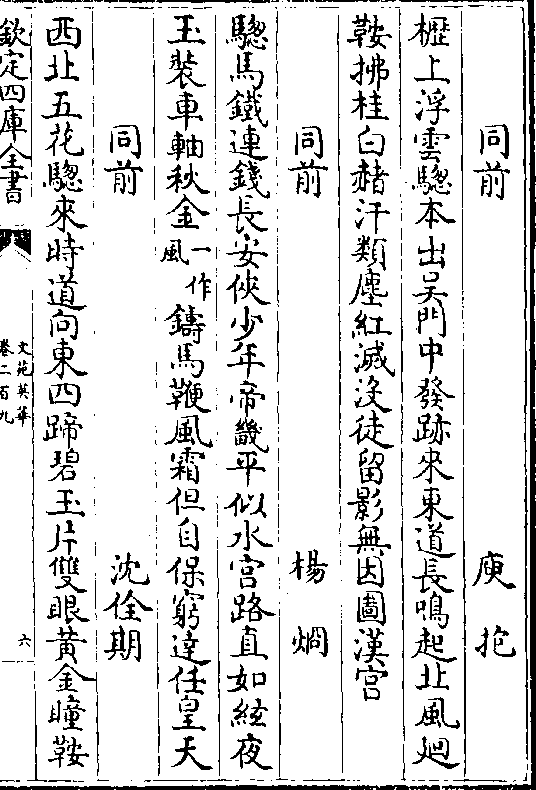 同前　庾抱
櫪上浮雲驄本出吴門中發跡來東道長鳴起北風廻
鞍拂桂白赭汗類塵紅滅没徒留影無因圖漢宫
同前　楊烱
驄馬鐵連錢長安俠少年帝畿平似水宫路直如絃夜
玉裝車軸秋金一作風鑄馬鞭風霜但自保窮達任皇天
同前　沈佺期
西北五花驄來時道向東四蹄碧玉片雙眼黄金瞳鞍
欽定四庫全書
文苑英華
卷二百九
六